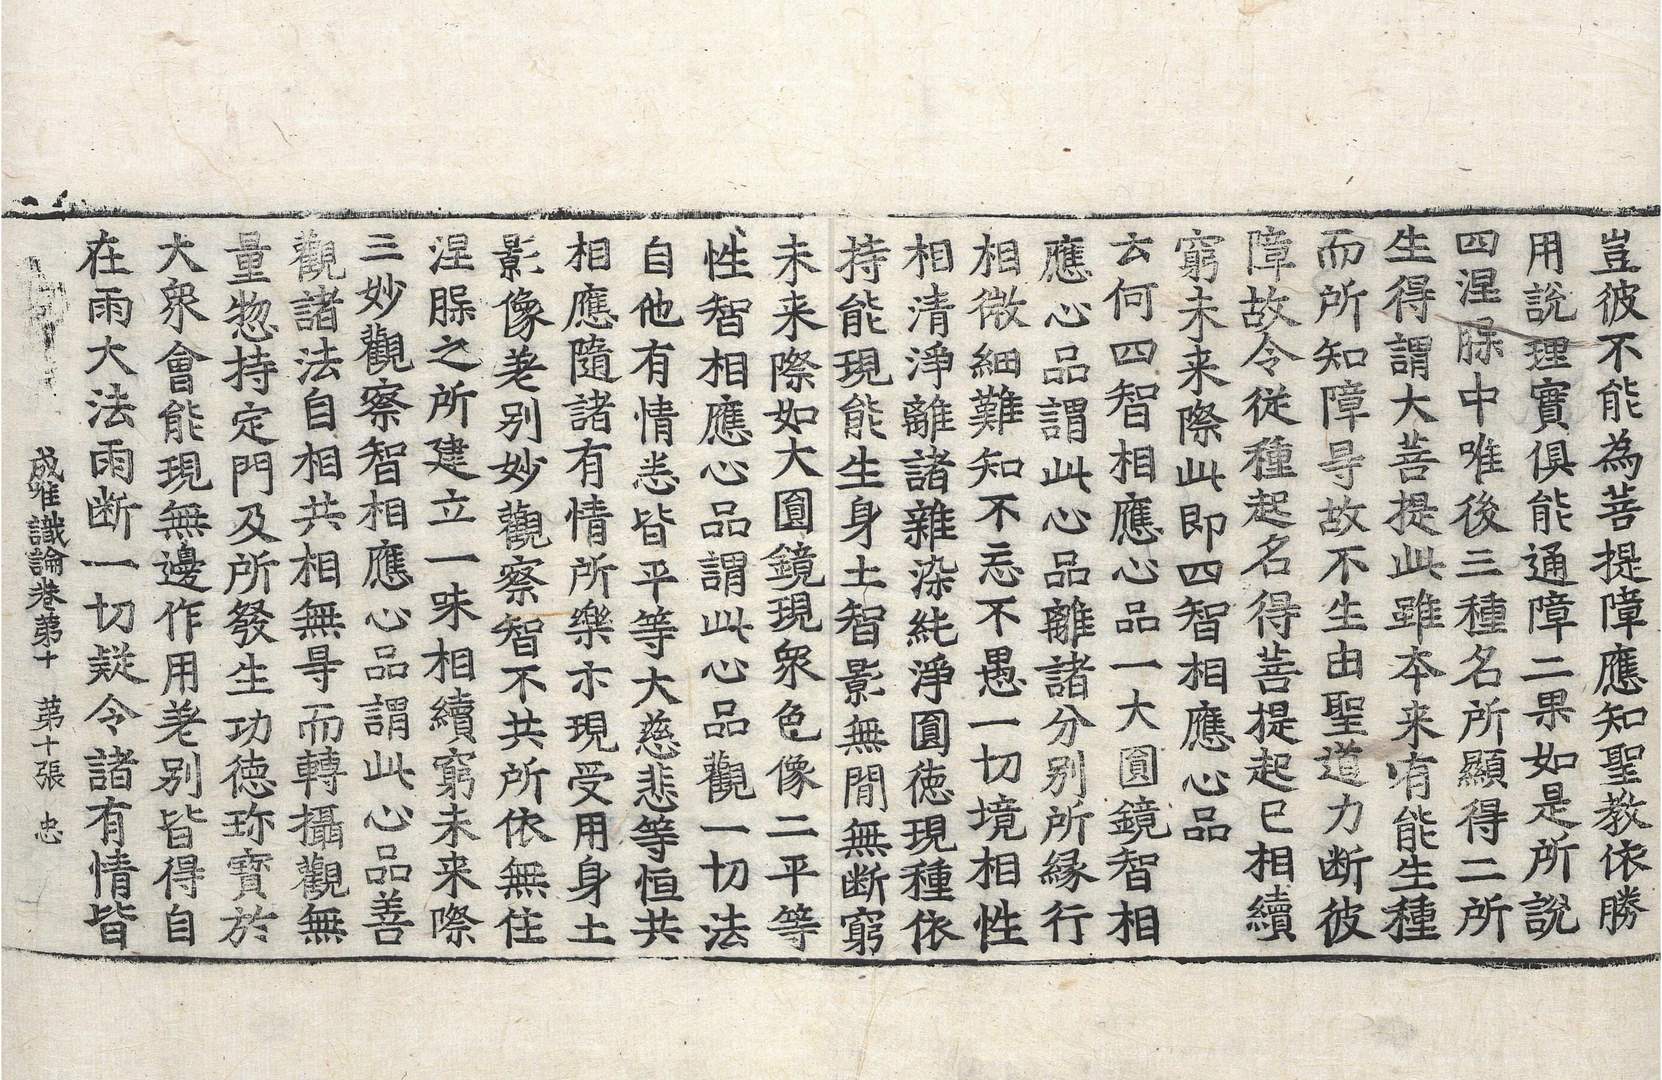 豈彼不能為菩提障應知聖教依勝
用說理實俱能通障二果如是所說
四涅脲中唯後三種名所顯得二所
生得謂大菩提此雖夲来有能生種
而所知障㝵故不生由聖道力断彼
障故令従種起名得菩提起已相續
窮未来際此即四智相應心品
云何四智相應心品一大圓鏡智相
應心品謂此心品離諸分別所縁行
相微細難知不忘不愚一切境相性
相清淨離諸雜染純淨圓徳現種依
持能現能生身土智影無間無断窮
未来際如大圓鏡現衆色像二平等
性智相應心品謂此心品觀一切法
自他有情悉皆平等大慈悲等恒共
相應隨諸有情所樂示現受用身土
影像差別妙觀察智不共所依無住
涅脲之所建立一味相續窮未来際
三妙觀察智相應心品謂此心品善
觀諸法自相共相無㝵而轉攝觀無
量惣持定門及所發生功徳珎寶於
大衆會能現無邊作用差別皆得自
在雨大法雨断一切疑令諸有情皆
成唯識論卷苐十 苐十張 忠